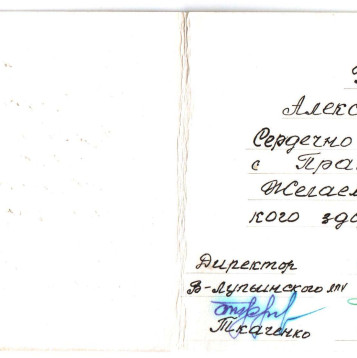 Алекс
Сердечно
с Пра
Желаем
кого здо
Директор
В-Лупьинского ЛПУ
Ткаченко